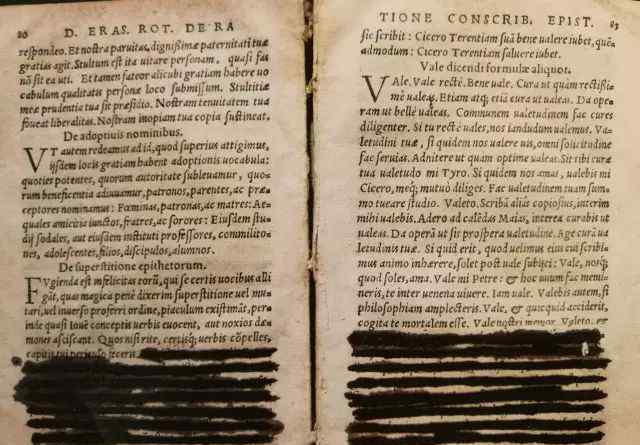 80 D. ERAS. ROT. DE RA
respondeo. Et nostra paruitas, dignißimæ paternitati tuæ
gratias agit. Stultum est ita uitare personam, quasi fas
nō sit ea uti. Et tamen fateor alicubi gratiam habere uo
cabulum qualitatis personæ loco submissum. Stultitiæ
meæ prudentia tua sit præsidio. Nostram tenuitatem tua
foueat liberalitas. Nostram inopiam tua copia sustineat.
De adoptiuis nominibus.
VT autem redeamus ad id, quod superius attigimus,
ijsdem locis gratiam habent adoptionis uocabula:
quoties potentes, quorum autoritate subleuamur, quo-
rum beneficentia adiuuamur, patronos, parentes, ac præ
ceptores nominamus: Fœminas, patronas, ac matres: Ae-
quales amicitia iunctos, fratres, ac sorores: Eiusdem stu-
dij sodales, aut eiusdem instituti professores, commilito-
nes, adolescentes, filios, discipulos, alumnos.
De superstitione epithetorum.
FVgienda est infelicitas eorū, qui se certis uocibus alli
gāt, quas magica penè dixerim superstitione uel mu-
tari, uel inuerso proferri ordine, piaculum existimāt, per-
inde quasi Iouē conceptis uerbis euocent, aut noxios dæ-
mones asciscant. Quos nisi rite, certisq; uerbis cōpelles,
capitis tui periculo feceris.
TIONE CONSCRIB. EPIST. 83
sic scribit: Cicero Terentiam suā bene ualere iubet, quē
admodum: Cicero Terentiam saluere iubet.
Vale dicendi formulæ aliquot.
VAle. Vale rectè. Bene uale. Cura ut quàm rectißi-
mè ualeas. Etiam atq; etiā cura ut ualeas. Da ope-
ram ut bellè ualeas. Communem ualetudinem fac cures
diligenter. Si tu rectè uales, nos iandudum ualemus. Va-
letudini tuæ, si quidem nos ualere uis, omni solicitudine
fac seruias. Adnitere ut quam optime ualeas. Sit tibi curæ
tua ualetudo mi Tyro. Si quidem nos amas, ualebis mi
Cicero, meq; mutuò diliges. Fac ualetudinem tuam sum-
mo tueare studio. Valeto. Scribā aliâs copiosius, interim
mihi ualebis. Adero ad calēdas Maias, interea curabis ut
ualeas. Da operā ut sis prospera ualetudine. Age cura ua
letudinis tuæ. Si quid erit, quod uelimus eius cui scribi-
mus animo inhærere, solet post uale subijci: Vale, nosq;
quod soles, ama. Vale mi Petre: & hoc unum fac memi-
neris, te inter uenena uiuere. Iam uale. Valebis autem, si
philosophiam amplecteris. Vale, & quicquid acciderit,
cogita te mortalem esse. Vale nostri memor. Valeto, &